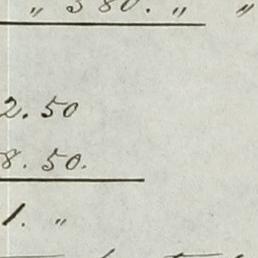 „ 380. „ „
2.50
8.50.
1. „